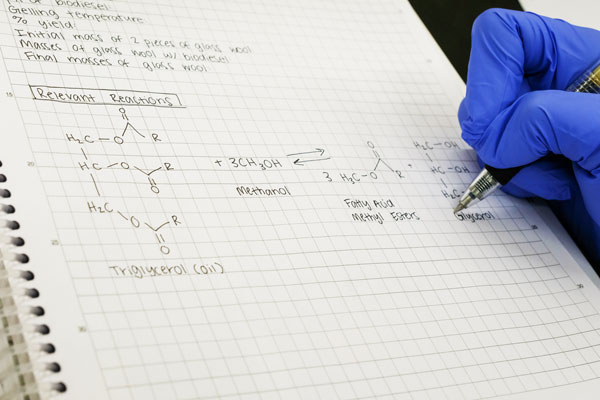 PH of biodiesel
Gelling temperature
% yield
Initial mass of 2 pieces of glass wool
Masses of glass wool w/ biodiesel
Final masses of glass wool
Relevant Reactions
O
H₂C — O R
HC — O R
O
H₂C O R
O
+ 3CH₃OH
Methanol
Triglycerol (oil)
O
3 H₃C — O R
Fatty Acid
Methyl Esters
+
H₂C — OH
HC — OH
H₂C
Glycerol
15
20
25
30
30